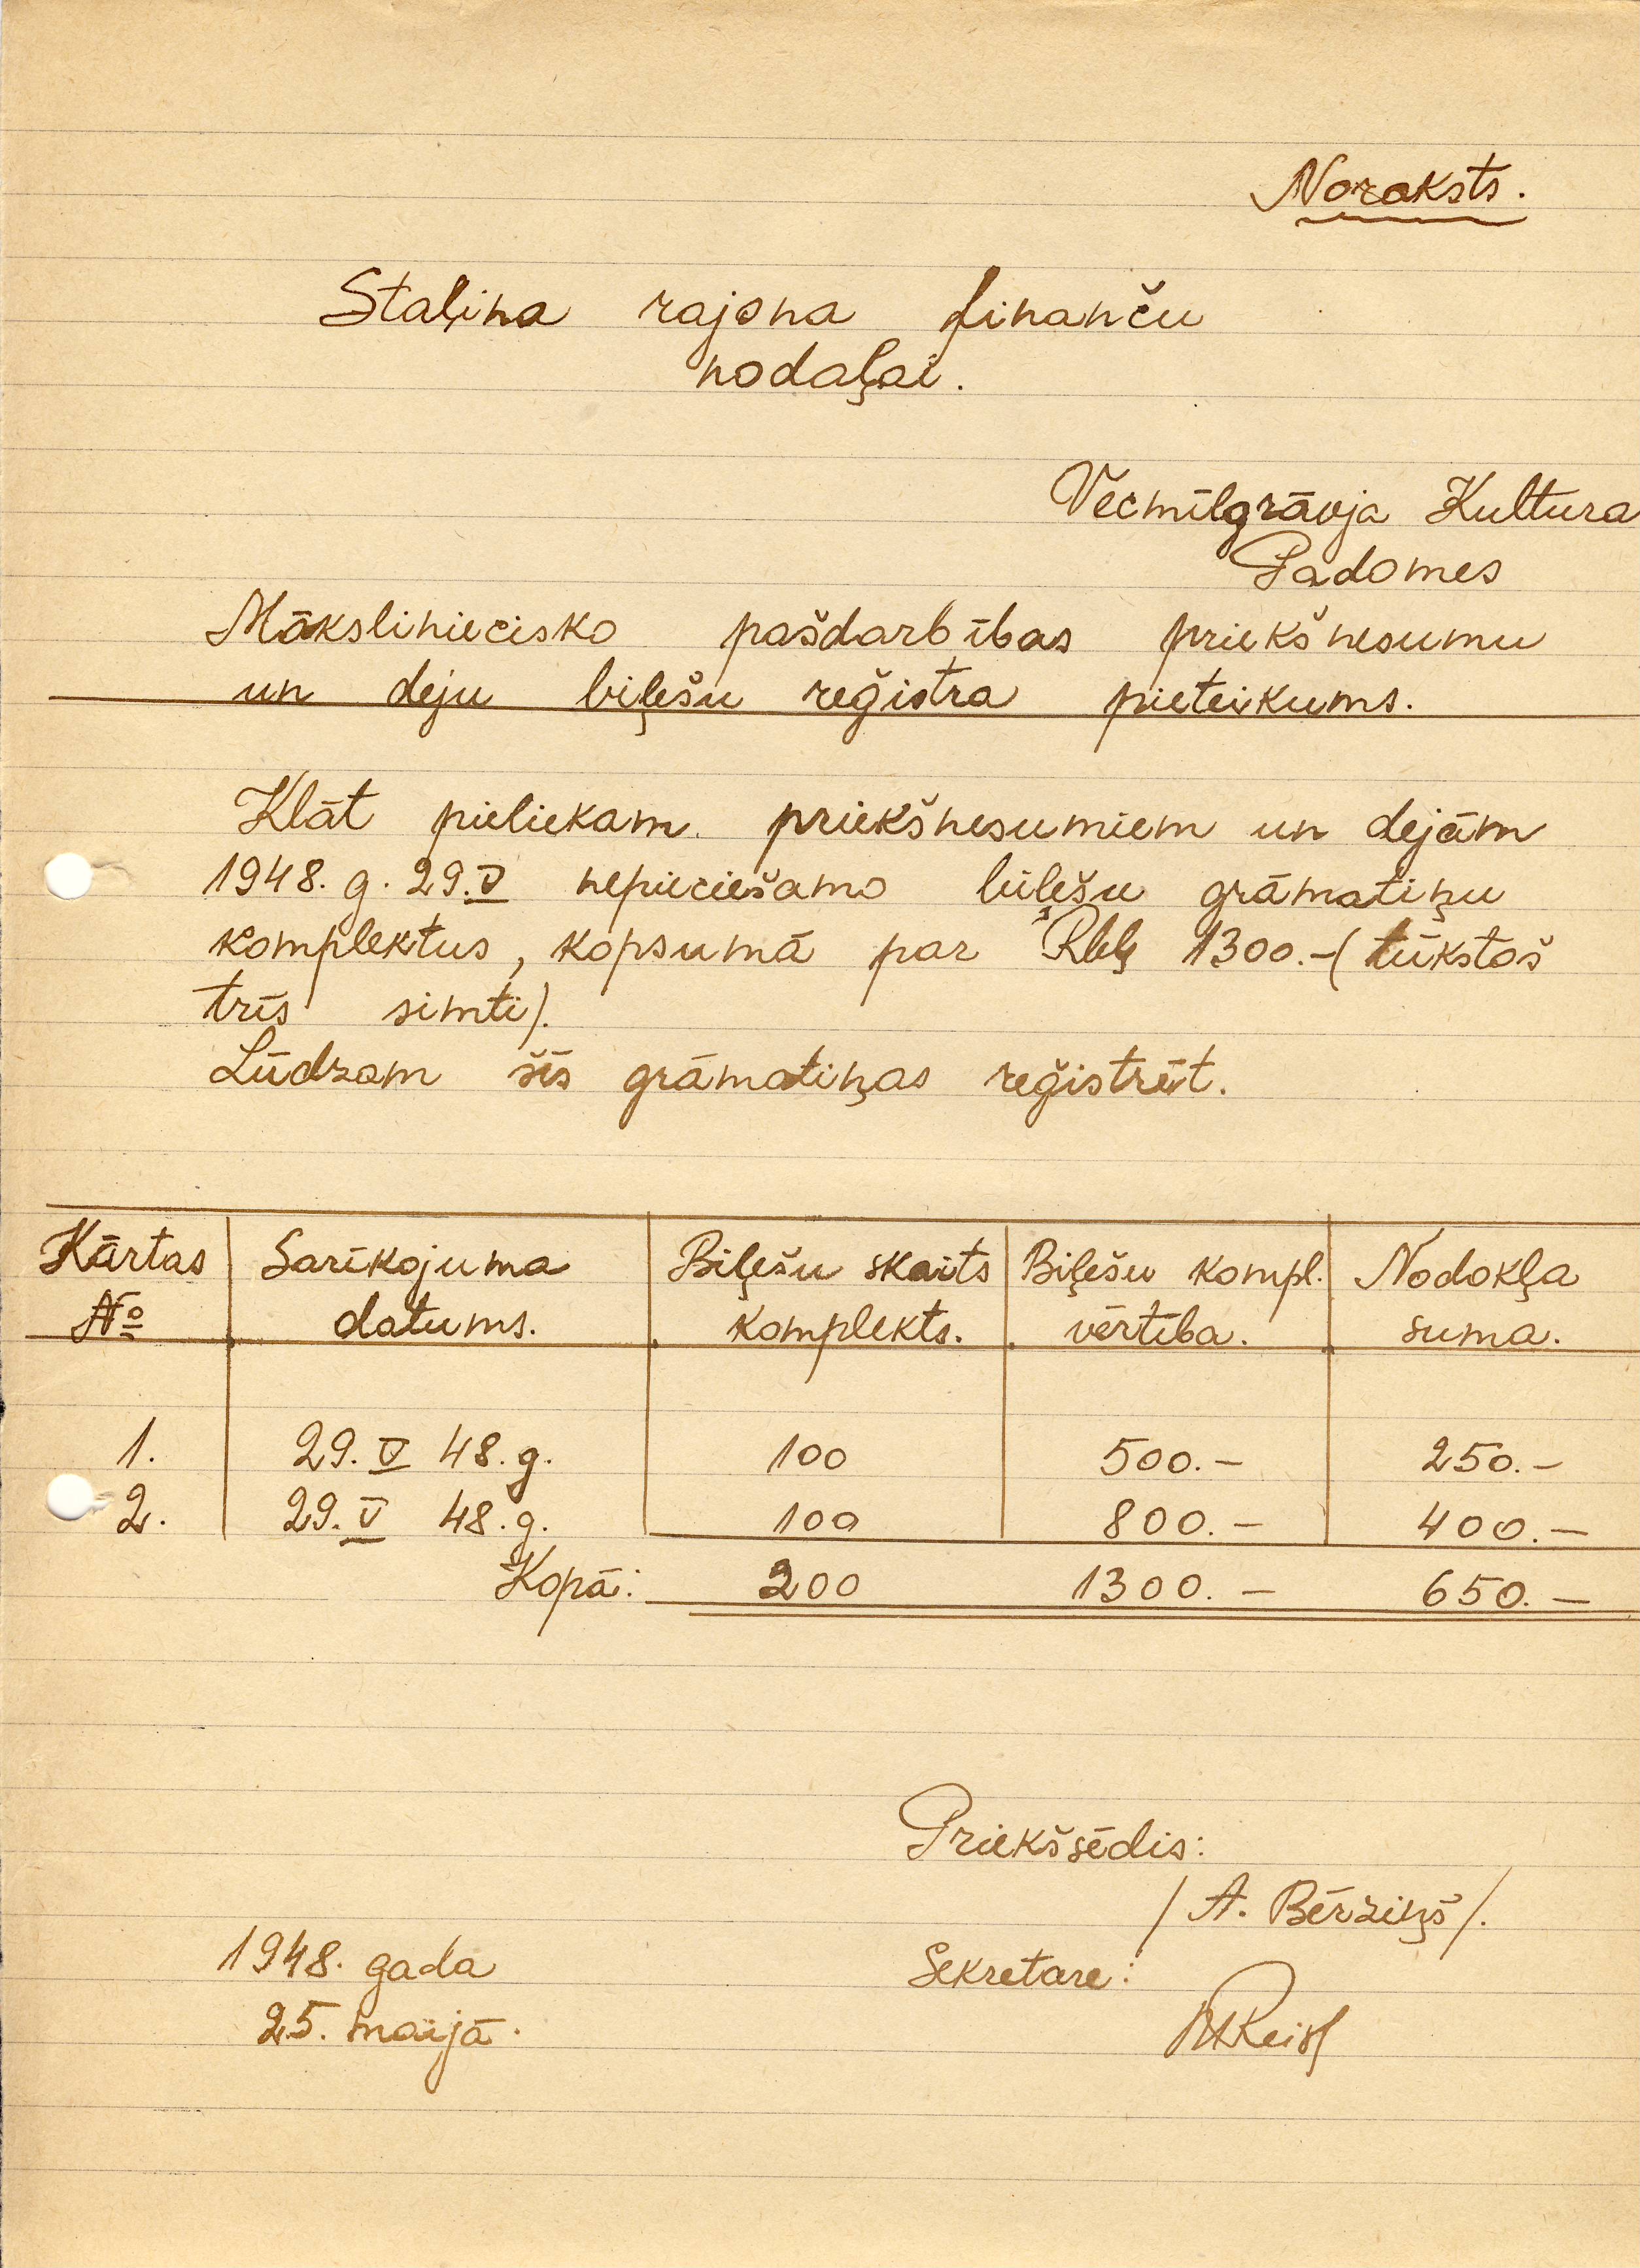 Noraksts.
Staļina rajona finanču
nodaļai.
Vecmīlgrāvja Kultura
Padomes
Māksliniecisko pašdarbības priekšnesumu
un deju biļešu reģistra pieteikums.
Klāt pieliekam priekšnesumiem un dejām
1948. g. 29. V nepieciešamo biļešu grāmatiņu
komplektus, kopsumā par Rbļ 1300.- (tūkstoš
trīs simti/.
Lūdzam šīs grāmatiņas reģistrēt.
Kārtas Sarīkojuma Biļešu skaits Biļešu kompl. Nodokļa
No datums. komplekts. vērtība. suma.
1. 29. V 48. g. 100 500.- 250.-
2. 29. V 48. g. 100 800.- 400.-
Kopā: 200 1300.- 650.-
Priekšsēdis:
/ A. Bērziņš /.
1948. gada Sekretare:
25. maijā.